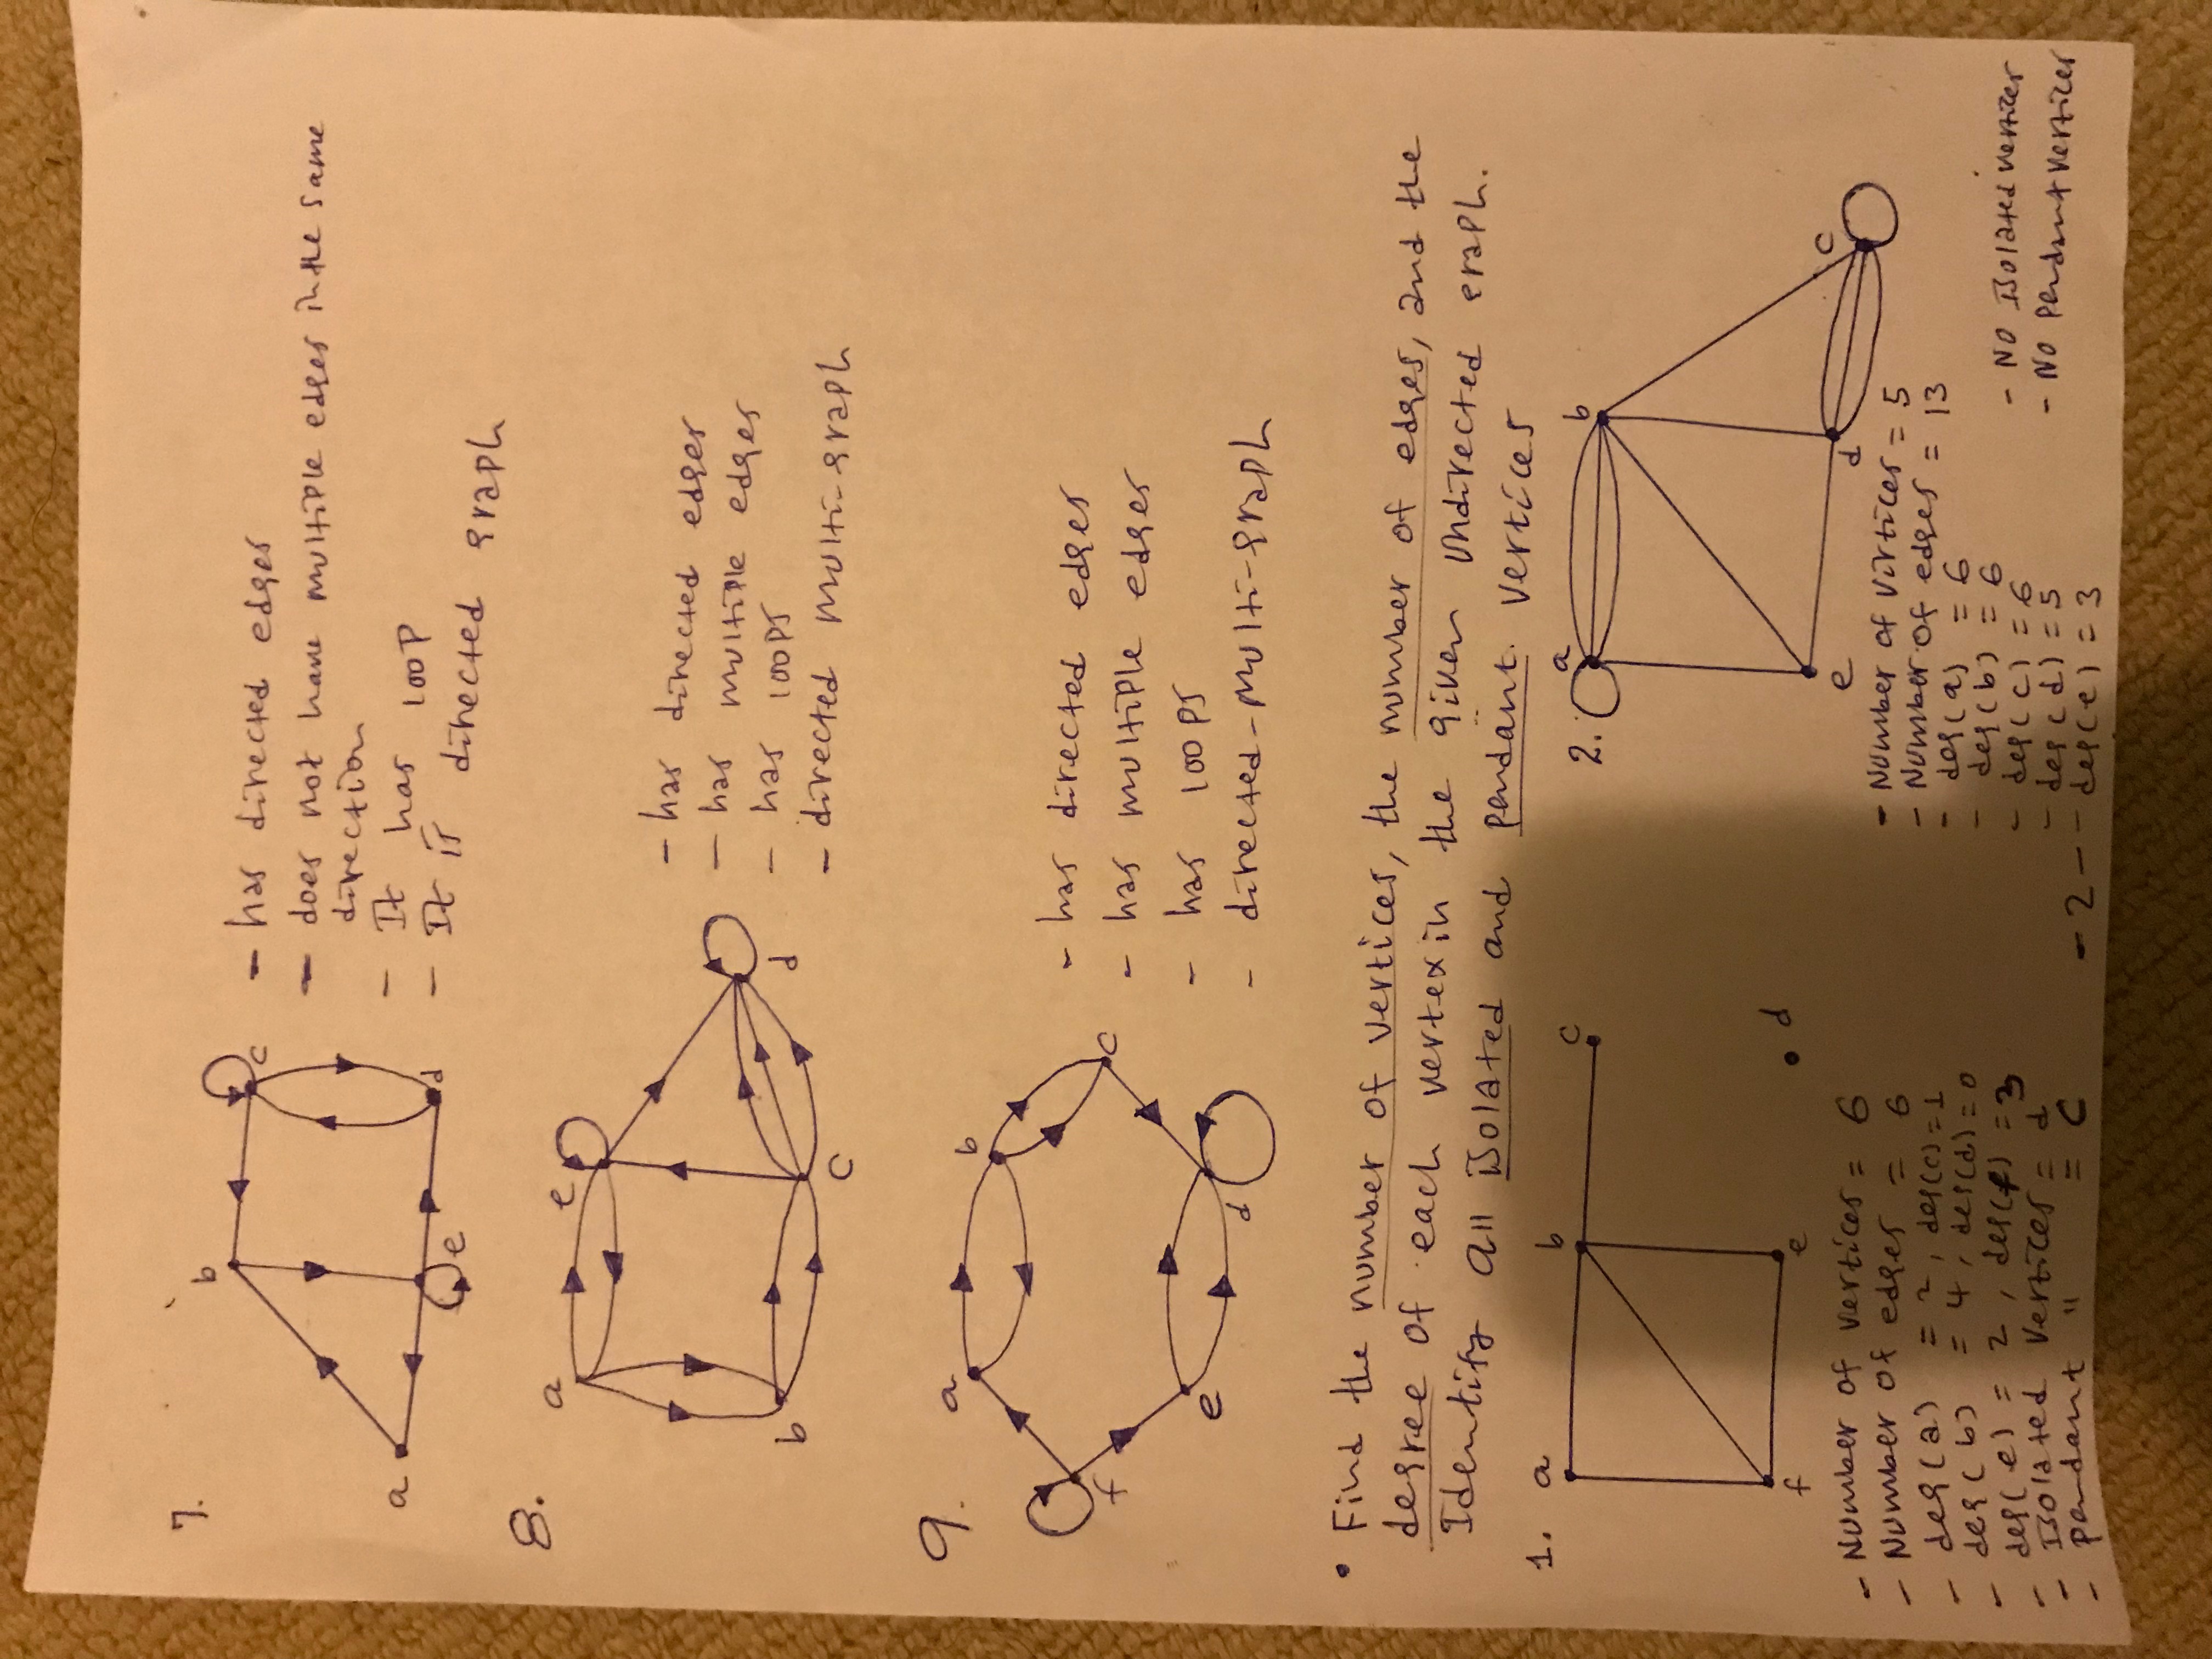 7.
b
c
a
e
d
- has directed edges
- does not have multiple edges in the same
direction
- It has loop
- It is directed graph
8.
a
e
b
c
d
- has directed edges
- has multiple edges
- has loops
- directed multi-graph
9.
a
b
f
c
e
d
- has directed edges
- has multiple edges
- has loops
- directed-multi-graph
• Find the number of vertices, the number of edges, and the
degree of each vertex in the given undirected graph.
Identify all isolated and pendant vertices
1.
a
b
c
f
e
d
- Number of vertices = 6
- Number of edges = 6
- deg(a) = 2, deg(c)=1
- deg(b) = 4, deg(d)=0
- deg(e) = 2, deg(f) =3
- Isolated vertices = d
- pendant " = C
2.
a
b
e
d
c
- Number of virtices = 5
- Number of edges = 13
- deg(a) = 6
- deg(b) = 6
- deg(c) = 6
- deg(d) = 5
- deg(e) = 3
- No Isolated vertices
- No pendant vertices
-2-